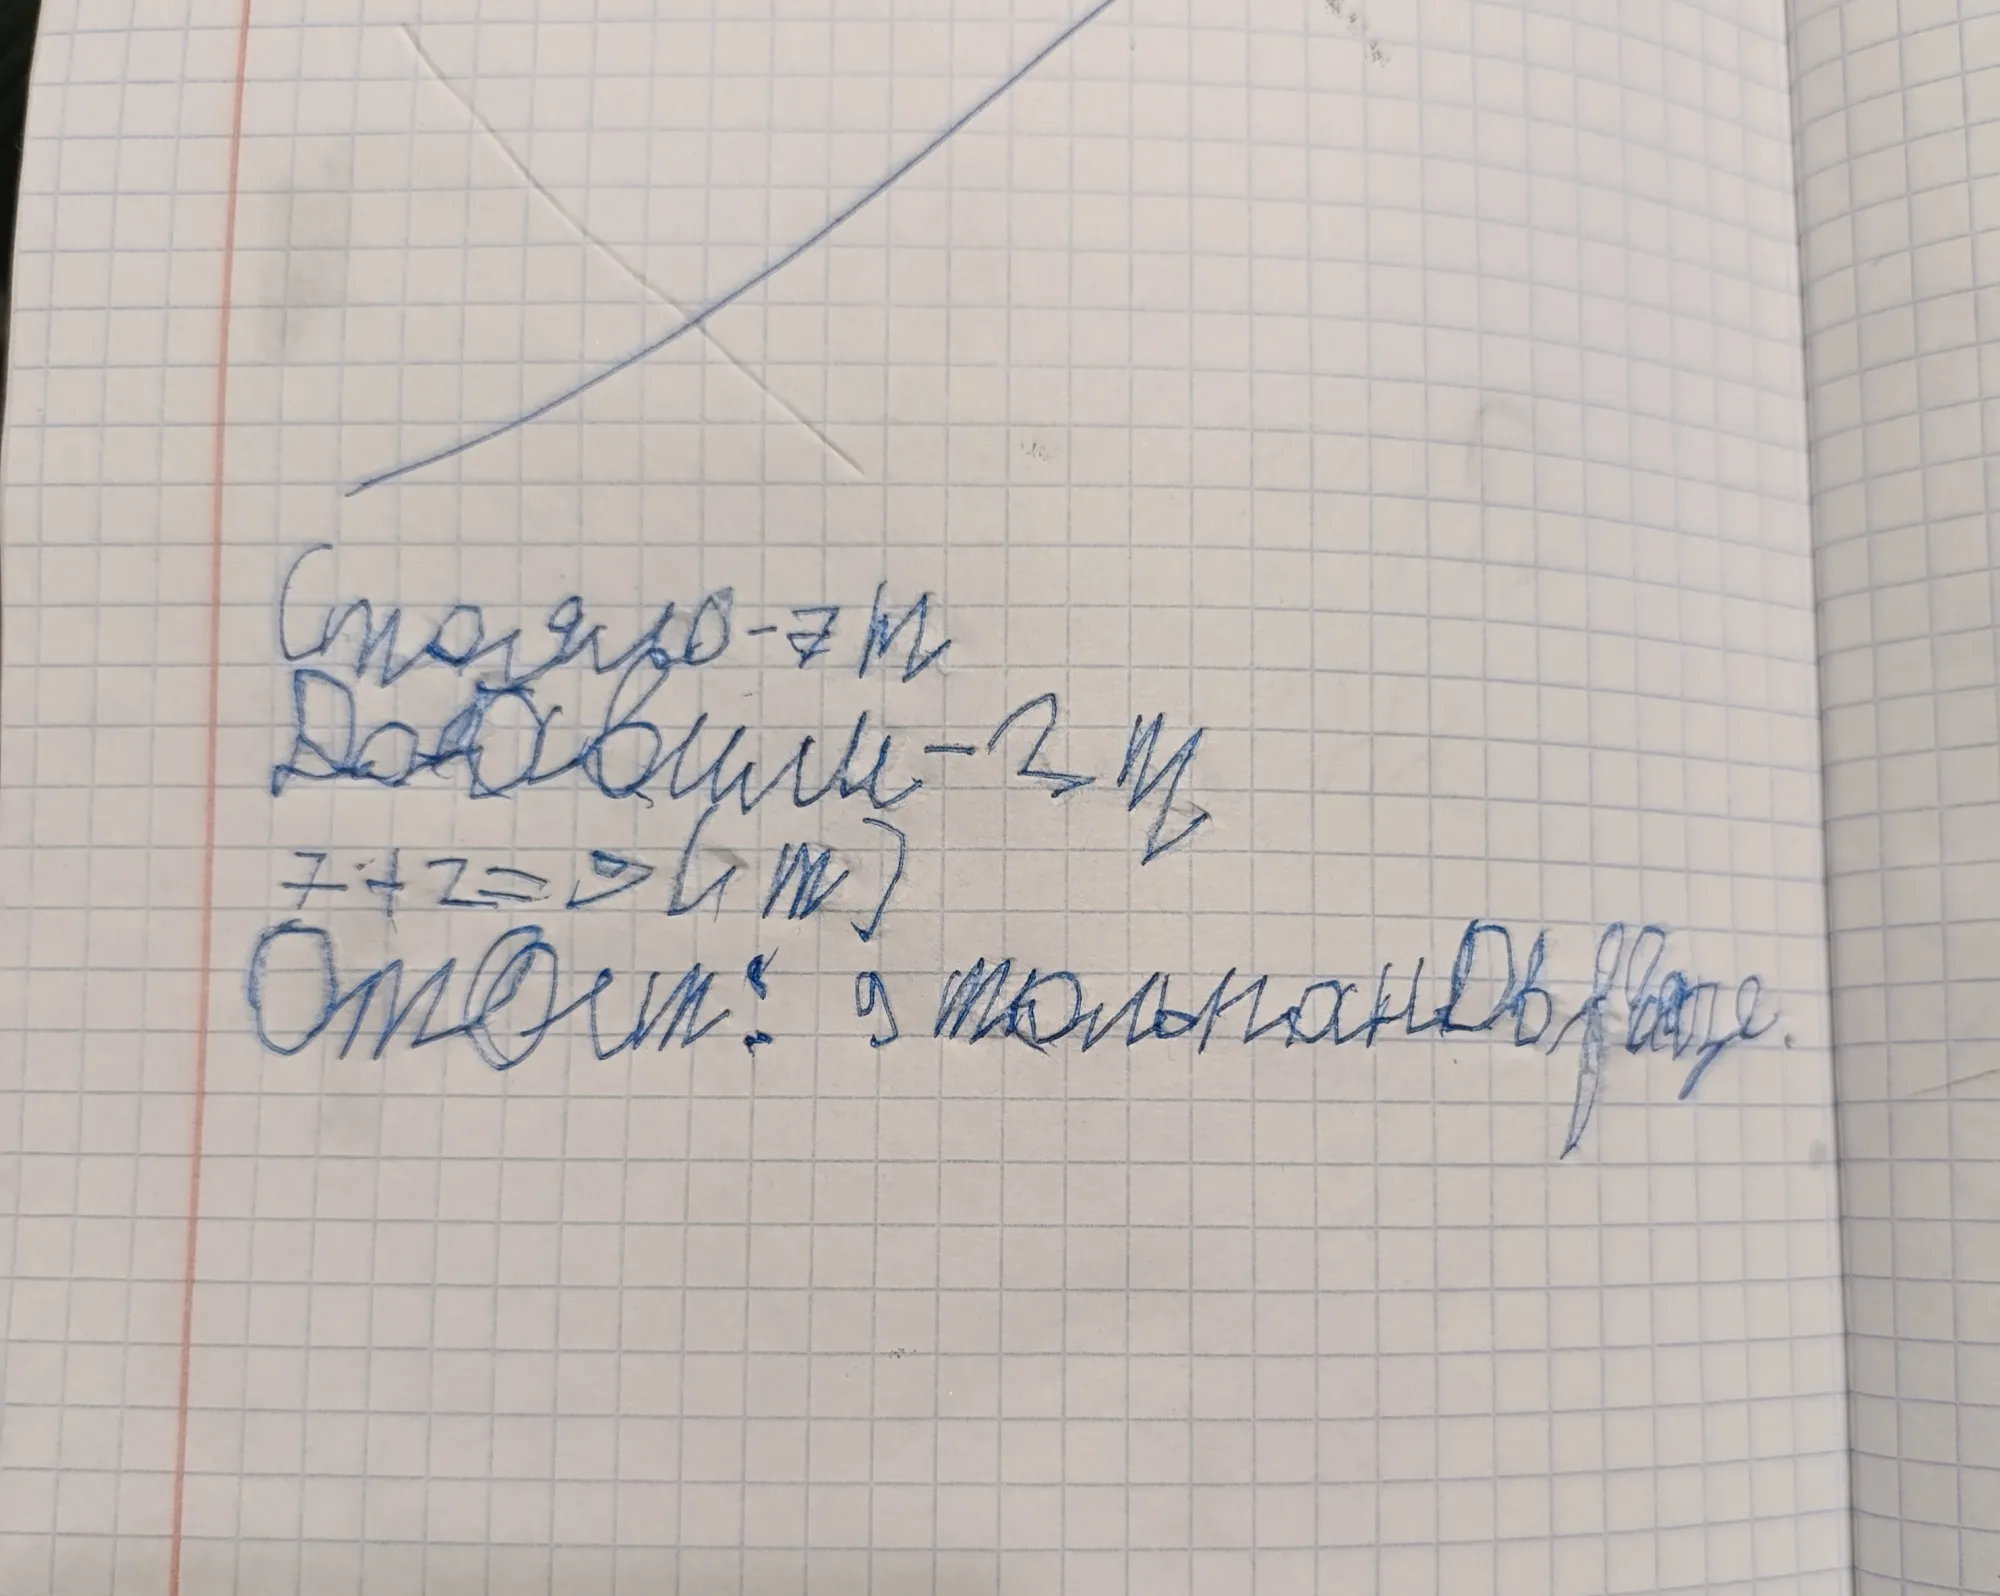 Стояло - 7 т
Добавили - 2 т
7 + 2 = 9 ( т )
Ответ: 9 тюльпанов в вазе.